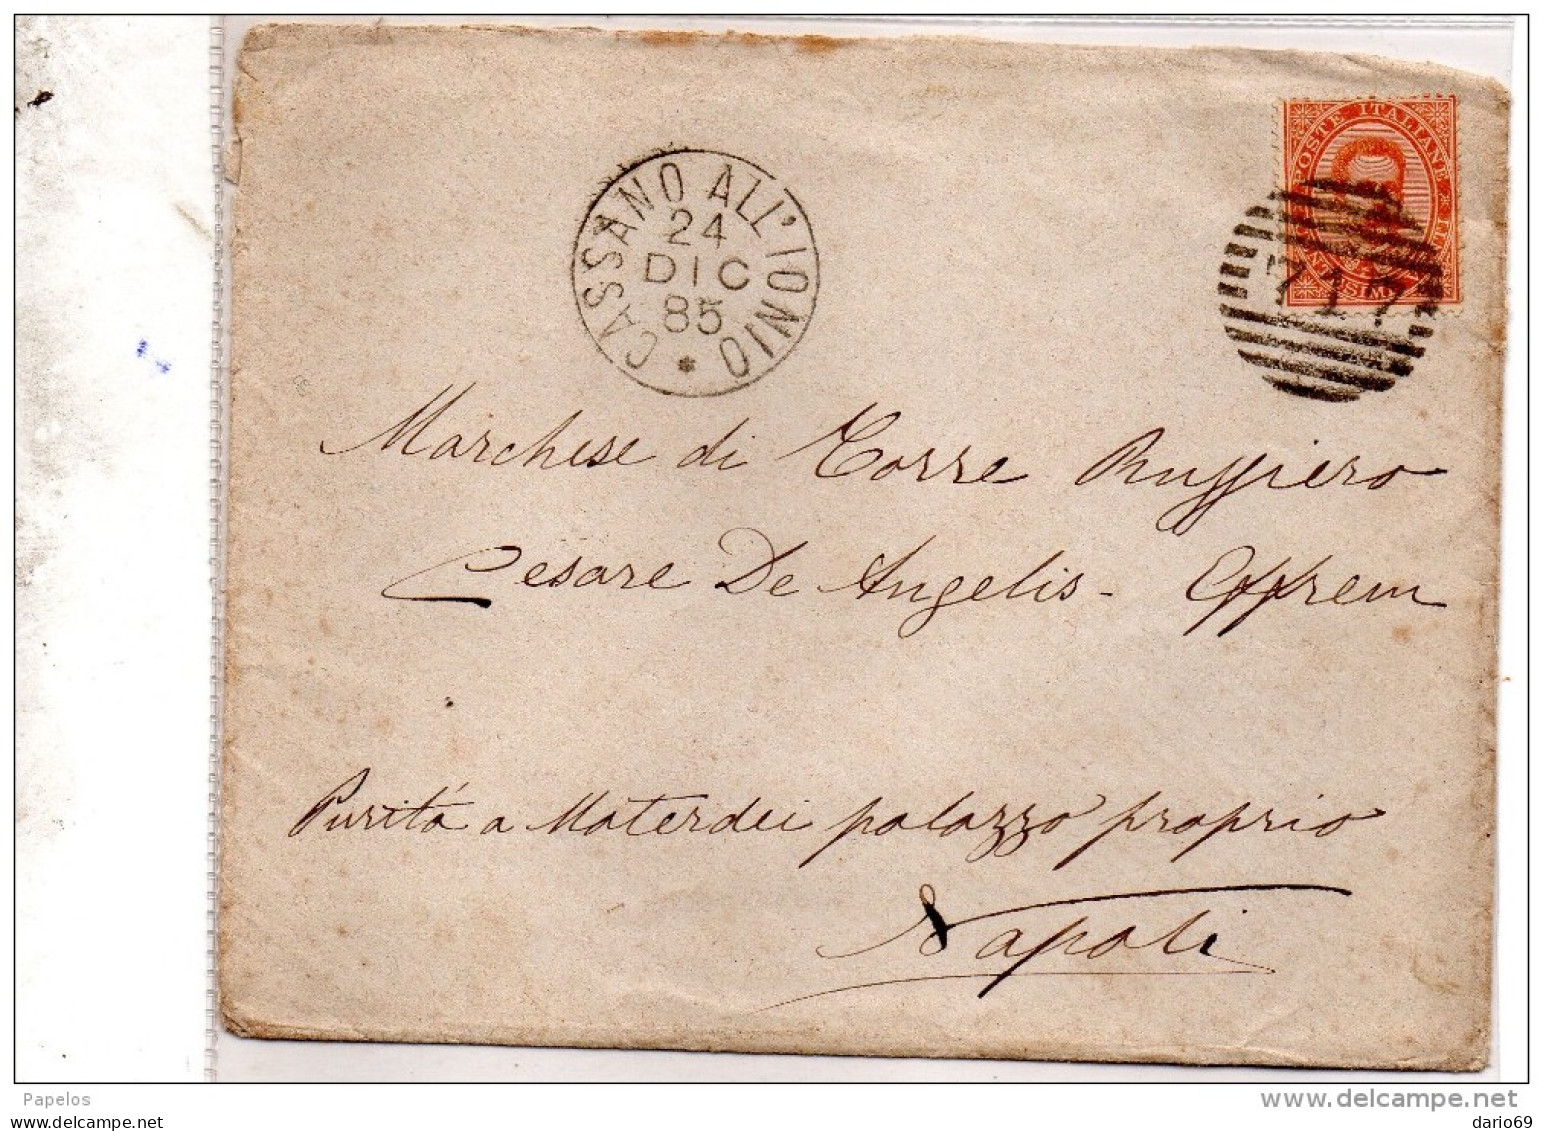 CASSANO ALL'IONIO
24
DIC
85
POSTE ITALIANE
717
Marchese di Torre Ruffiero
Cesare De Angelis - Effrem
Purità a Materdei palazzo proprio
Napoli
Papelos
delcampe.net
dario69